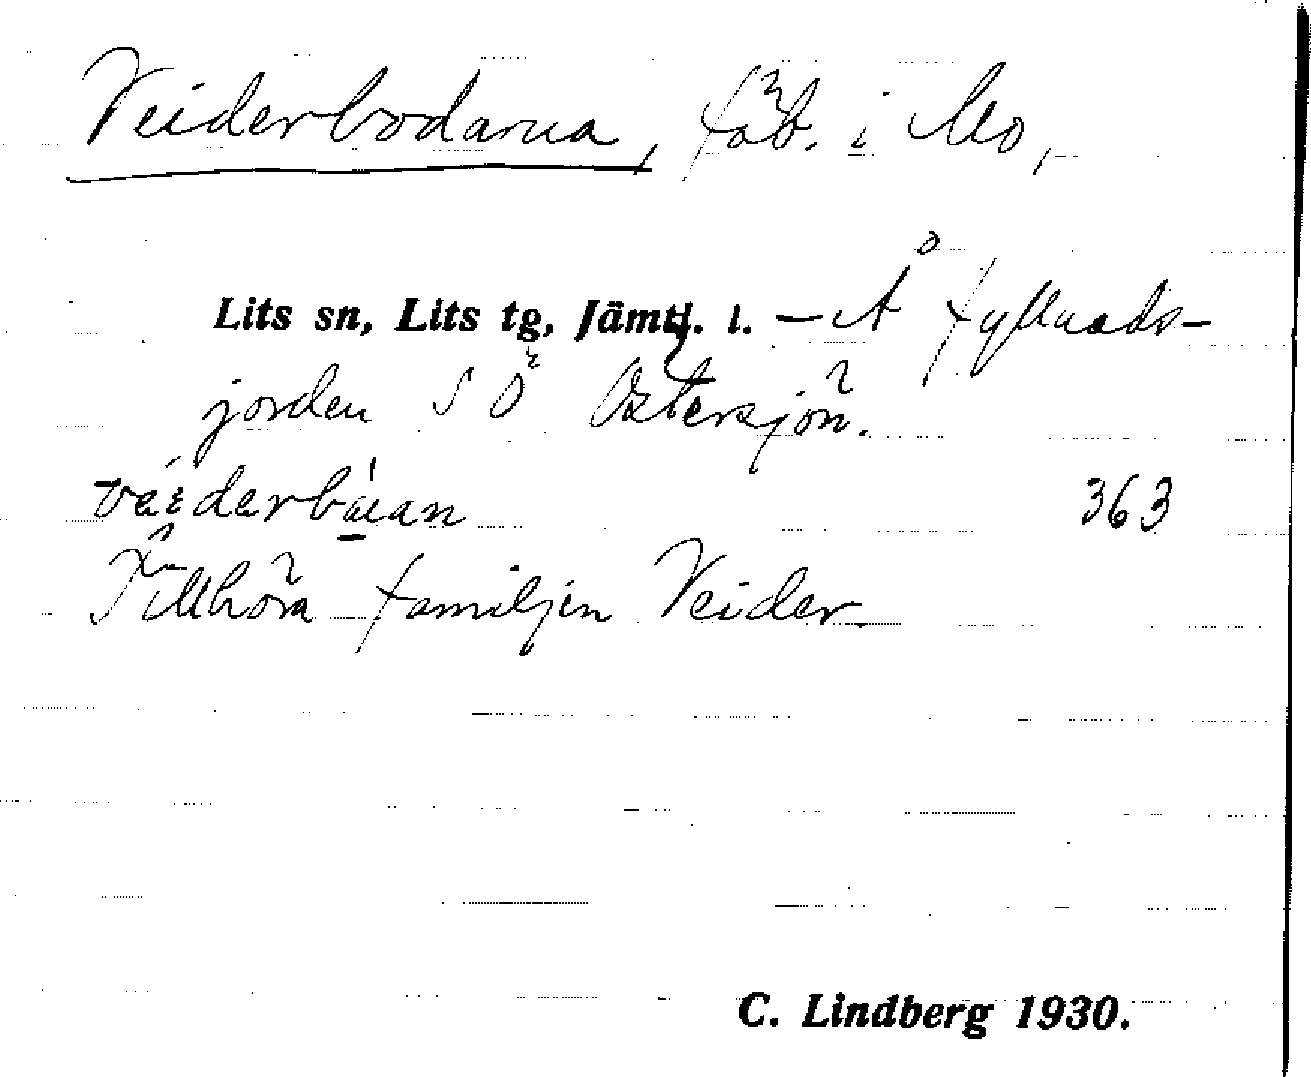 Veiderbodarna, fäb. i Mo,
Lits sn, Lits tg, Jämtl. l. – Å fyllnads-
jorden SÖ Östersjön.
363
Tillhöra familjen Veider
C. Lindberg 1930.